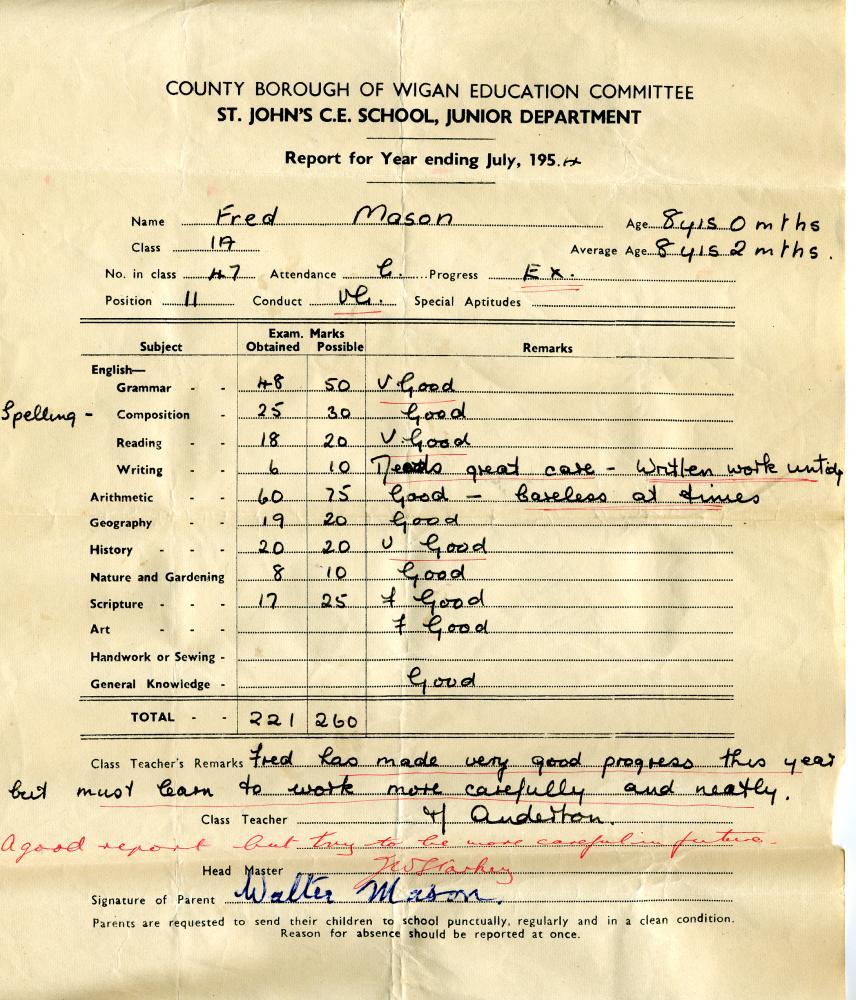 COUNTY BOROUGH OF WIGAN EDUCATION COMMITTEE
ST. JOHN'S C.E. SCHOOL, JUNIOR DEPARTMENT
Report for Year ending July, 195.4
Name Fred Mason Age 8 yrs 0 mths
Class 1A Average Age 8 yrs 2 mths.
No. in class 47 Attendance G. Progress Ex.
Position 11 Conduct VG. Special Aptitudes
Subject Exam. Marks Obtained Possible Remarks
English—
Grammar - - 48 50 V Good
Spelling - Composition - - 25 30 Good
Reading - - 18 20 V. Good
Writing - - 6 10 Needs great care - Written work untidy
Arithmetic - - 60 75 Good - Careless at times
Geography - - 19 20 Good
History - - - 20 20 V Good
Nature and Gardening 8 10 Good
Scripture - - - 17 25 F Good
Art - - - F Good
Handwork or Sewing -
General Knowledge - Good
TOTAL - - 221 260
Class Teacher's Remarks Fred has made very good progress this year
but must learn to work more carefully and neatly.
Class Teacher Anderton.
A good report but try to be more careful in future.
Head Master
Signature of Parent Walter Mason.
Parents are requested to send their children to school punctually, regularly and in a clean condition.
Reason for absence should be reported at once.